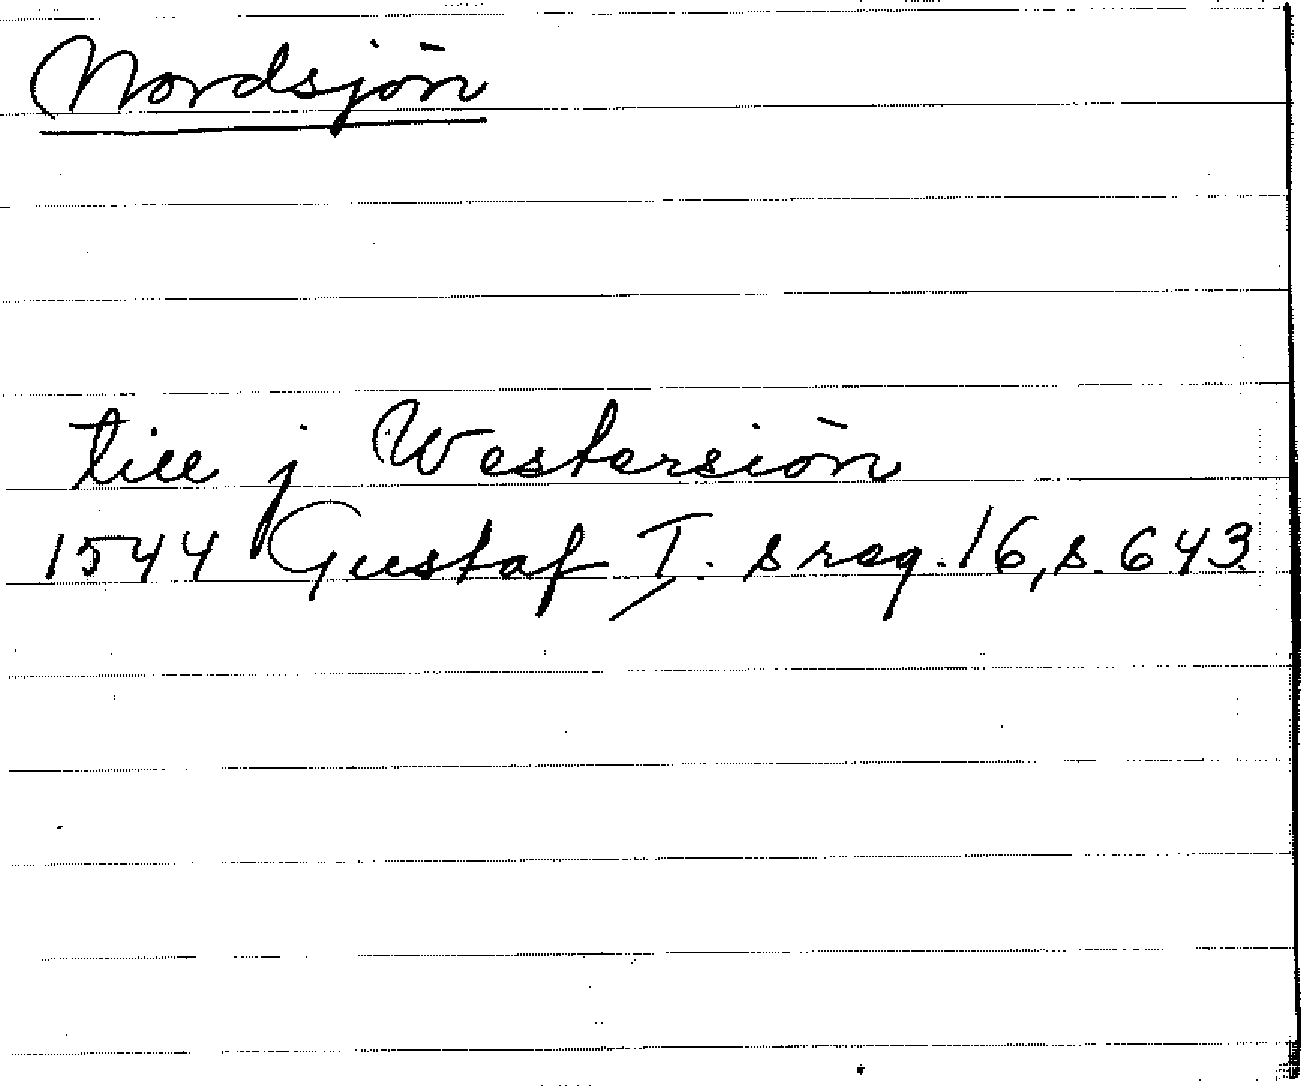 Nordsjön
till j Westersiön
1544 Gustaf I:s reg. 16, s. 643